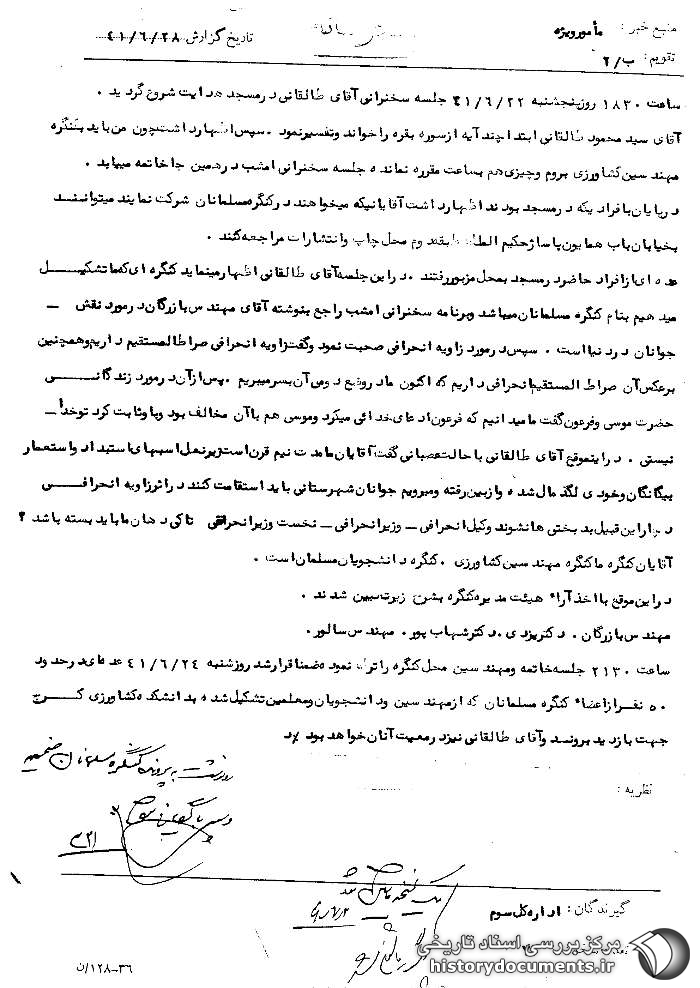 منبع خبر : مأمور ویژه
تاریخ گزارش ۴۱/۶/۲۸
تقویم : ب/۲
ساعت ۱۸۳۰ روز پنجشنبه ۴۱/۶/۲۲ جلسه سخنرانی آقای طالقانی در مسجد هدایت شروع گردید .
آقای سید محمود طالقانی ابتدا چند آیه از سوره بقره را خواند و تفسیر نمود . سپس اظهار داشت چون من باید بکنگره
مهندسین کشاورزی بروم و چیزی هم بساعت مقرره نمانده جلسه سخنرانی امشب در همین جا خاتمه مییابد .
در پایان با افرادیکه در مسجد بودند اظهار داشت آقایانیکه میخواهند در کنگره مسلمانان شرکت نمایند میتوانند
بخیابان باب همایون پاساژ حکیم الملک طبقه دوم محل چاپ و انتشارات مراجعه کنند .
عده ای از افراد حاضر در مسجد بمحل مزبور رفتند . در این جلسه آقای طالقانی اظهار مینماید کنگره ای که ما تشکیل
میدهیم بنام کنگره مسلمانان میباشد و برنامه سخنرانی امشب راجع بنوشته آقای مهندس بازرگان در مورد نقش
جوانان در دنیا است . سپس در مورد زاویه انحرافی صحبت نمود و گفت زاویه انحرافی صراط المستقیم داریم و همچنین
برعکس آن صراط المستقیم انحرافی داریم که اکنون ما در وضع دومی آن بسر میبریم . پس از آن در مورد زندگانی
حضرت موسی و فرعون گفت ما میدانیم که فرعون ادعای خدائی میکرد و موسی هم با آن مخالف بود و باو ثابت کرد تو خدا
نیستی . در اینموقع آقای طالقانی با حالت عصبانی گفت آقایان ما مدت نیم قرن است زیر نعل اسبهای استبداد و استعمار
بیگانگان و خودی لگدمال شده و از بین رفته و میرویم جوانان شهرستانی باید استقامت کنند در اثر زاویه انحرافی
دچار این قبیل بدبختی ها نشوند وکیل انحرافی ـ وزیر انحرافی ـ نخست وزیر انحرافی تا کی دهان ما باید بسته باشد ؟
آقایان کنگره ما کنگره مهندسین کشاورزی . کنگره دانشجویان مسلمان است .
در این موقع با اخذ آراء هیئت مدیره کنگره بشرح زیر تعیین شدند .
مهندس بازرگان . دکتر یزدی . دکتر شهاب پور . مهندس سالور .
ساعت ۲۱۳۰ جلسه خاتمه و مهندسین محل کنگره را ترک نمود ضمنا قرار شد روز شنبه ۴۱/۶/۲۴ عده ای در حدود
۵۰ نفر از اعضاء کنگره مسلمانان که از مهندسین و دانشجویان و معلمین تشکیل شده بدانشکده کشاورزی کرج
جهت بازدید بروند و آقای طالقانی نیز در معیت آنان خواهد بود
نظریه :
گیرندگان : اداره کل سوم
۱۲۸-۳۶/ن
مرکز بررسی اسناد تاریخی
historydocuments.ir